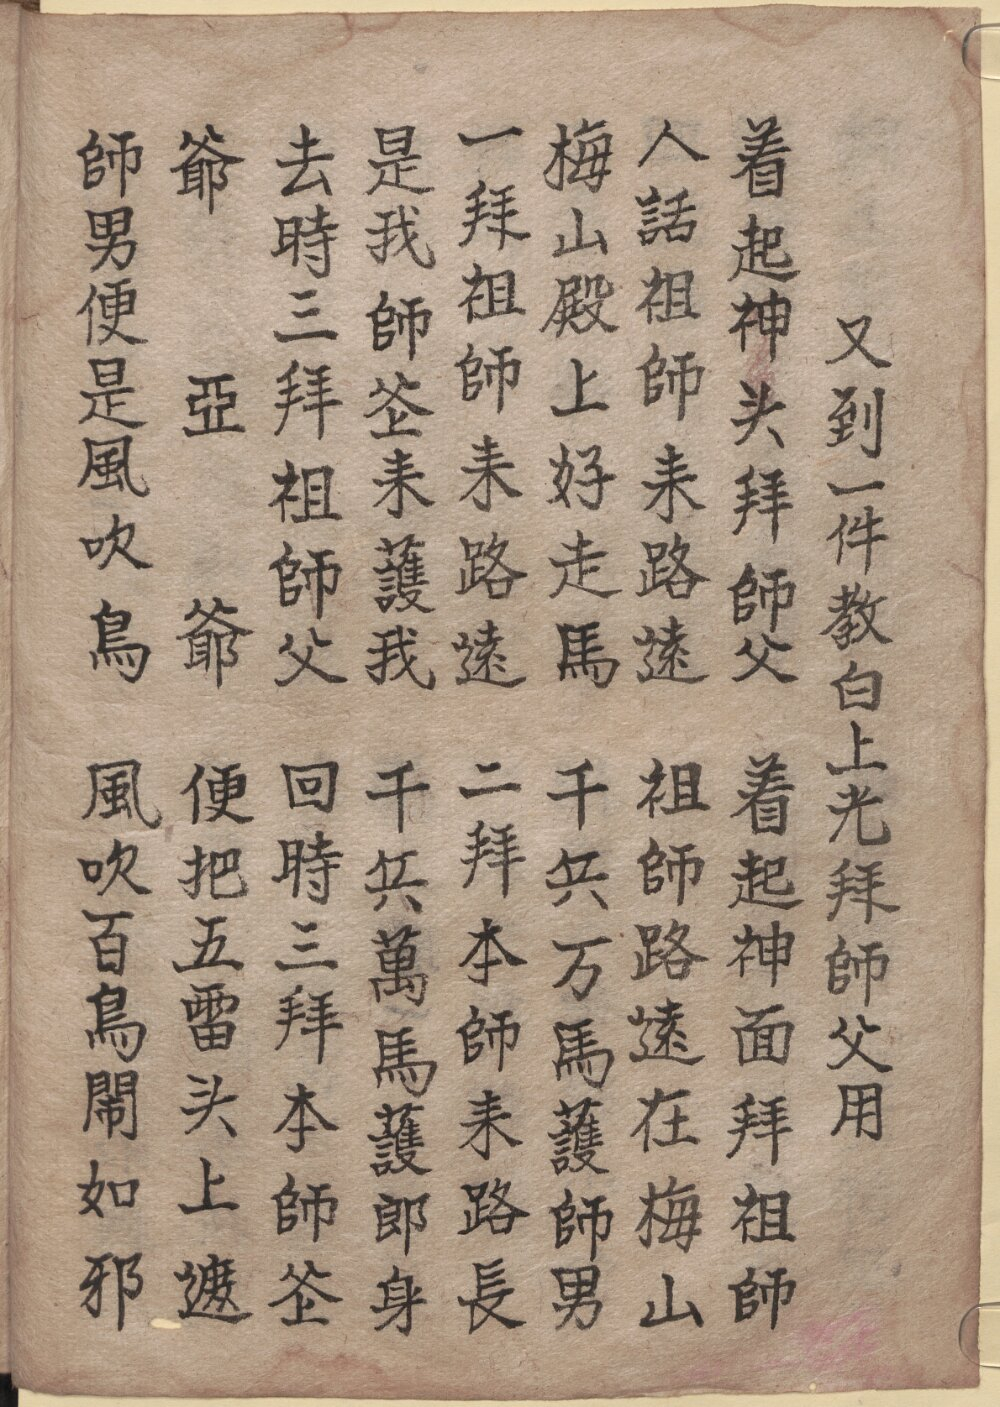 又到一件教白上光拜師父用
着起神头拜師父　着起神面拜祖師
人話祖師耒路遠　祖師路遠在梅山
梅山殿上好走馬　千兵万馬護師男
一拜祖師耒路遠　二拜本師耒路長
是我師㘴耒護我　千兵萬馬護郎身
去時三拜祖師父　回時三拜本師㘴
爺亞爺　便把五雷头上遮
師男便是風吹鳥　風吹百鳥鬧如邪